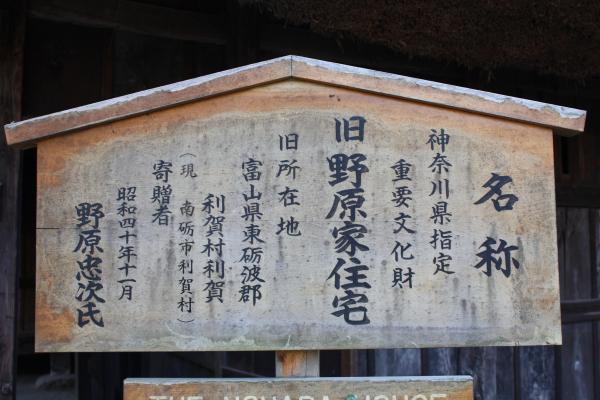 名称
神奈川県指定
重要文化財
旧野原家住宅
旧所在地
富山県東砺波郡
利賀村利賀
（現 南砺市利賀村）
寄贈者
昭和四十年十一月
野原忠次氏
THE NOHARA HOUSE